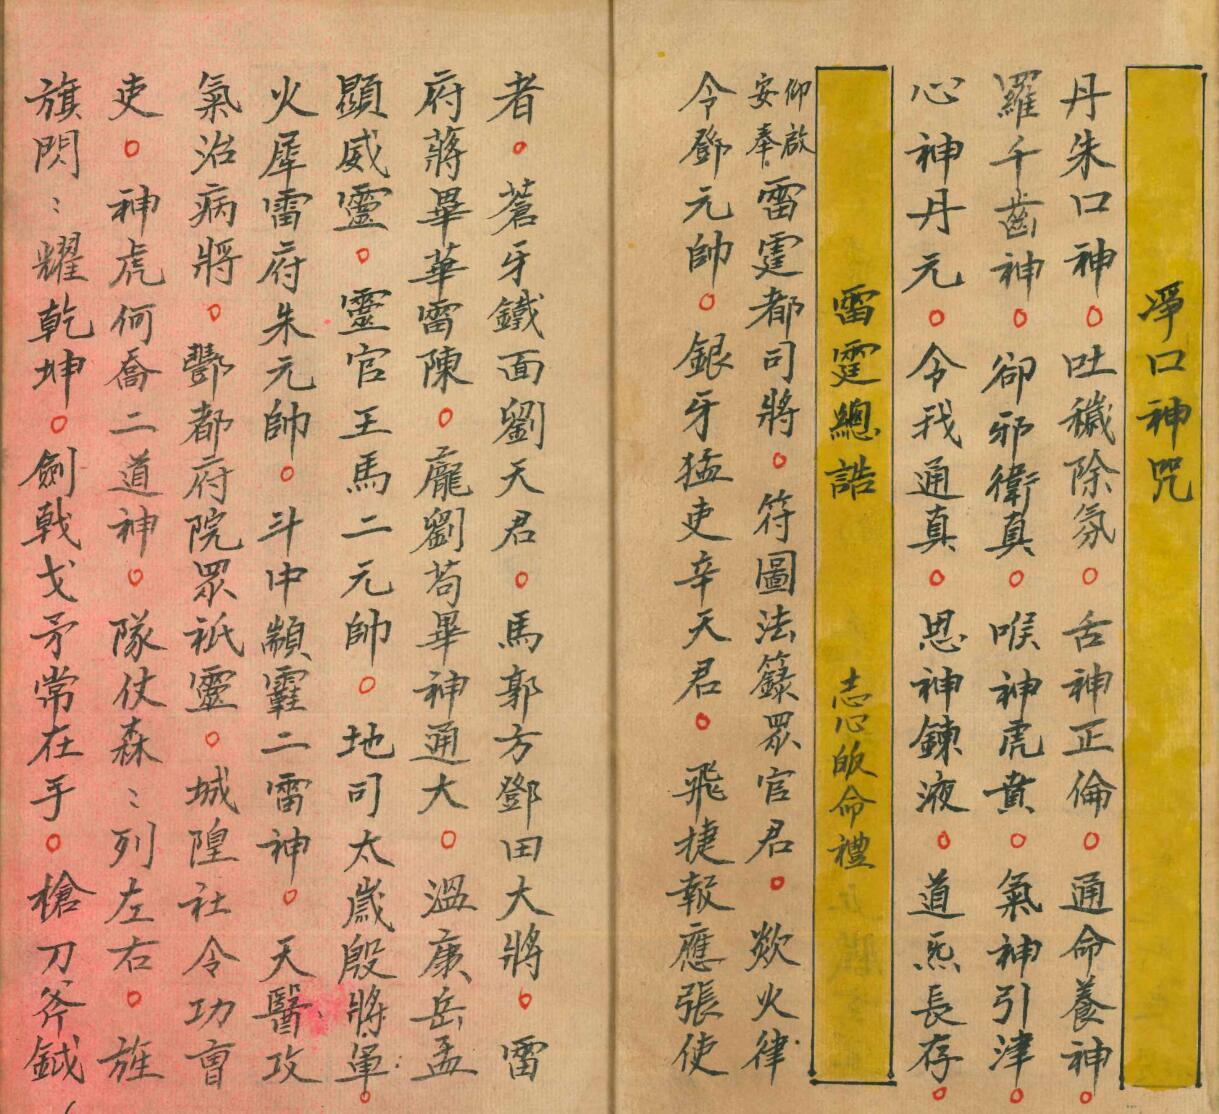 淨口神咒
丹朱口神○吐穢除氛○舌神正倫○通命養神○
羅千齒神○卻邪衛真○喉神虎賁○氣神引津○
心神丹元○令我通真○思神鍊液○道炁長存○
雷霆總誥 志心皈命禮
仰啟
安奉
雷霆都司將○符圖法籙眾官君○欻火律
令鄧元帥○銀牙猛吏辛天君○飛捷報應張使
者○蒼牙鐵面劉天君○馬郭方鄧田大將○雷
府蔣畢華雷陳○龐劉苟畢神通大○溫康岳孟
顯威靈○靈官王馬二元帥○地司太歲殷將軍○
火犀雷府朱元帥○斗中二雷神○天醫攻
氣治病將○酆都府院眾祇靈○城隍社令功曹
吏○神虎何喬二道神○隊仗森：列左右○旌
旗閃：耀乾坤○劍戟戈矛常在手○槍刀斧鉞